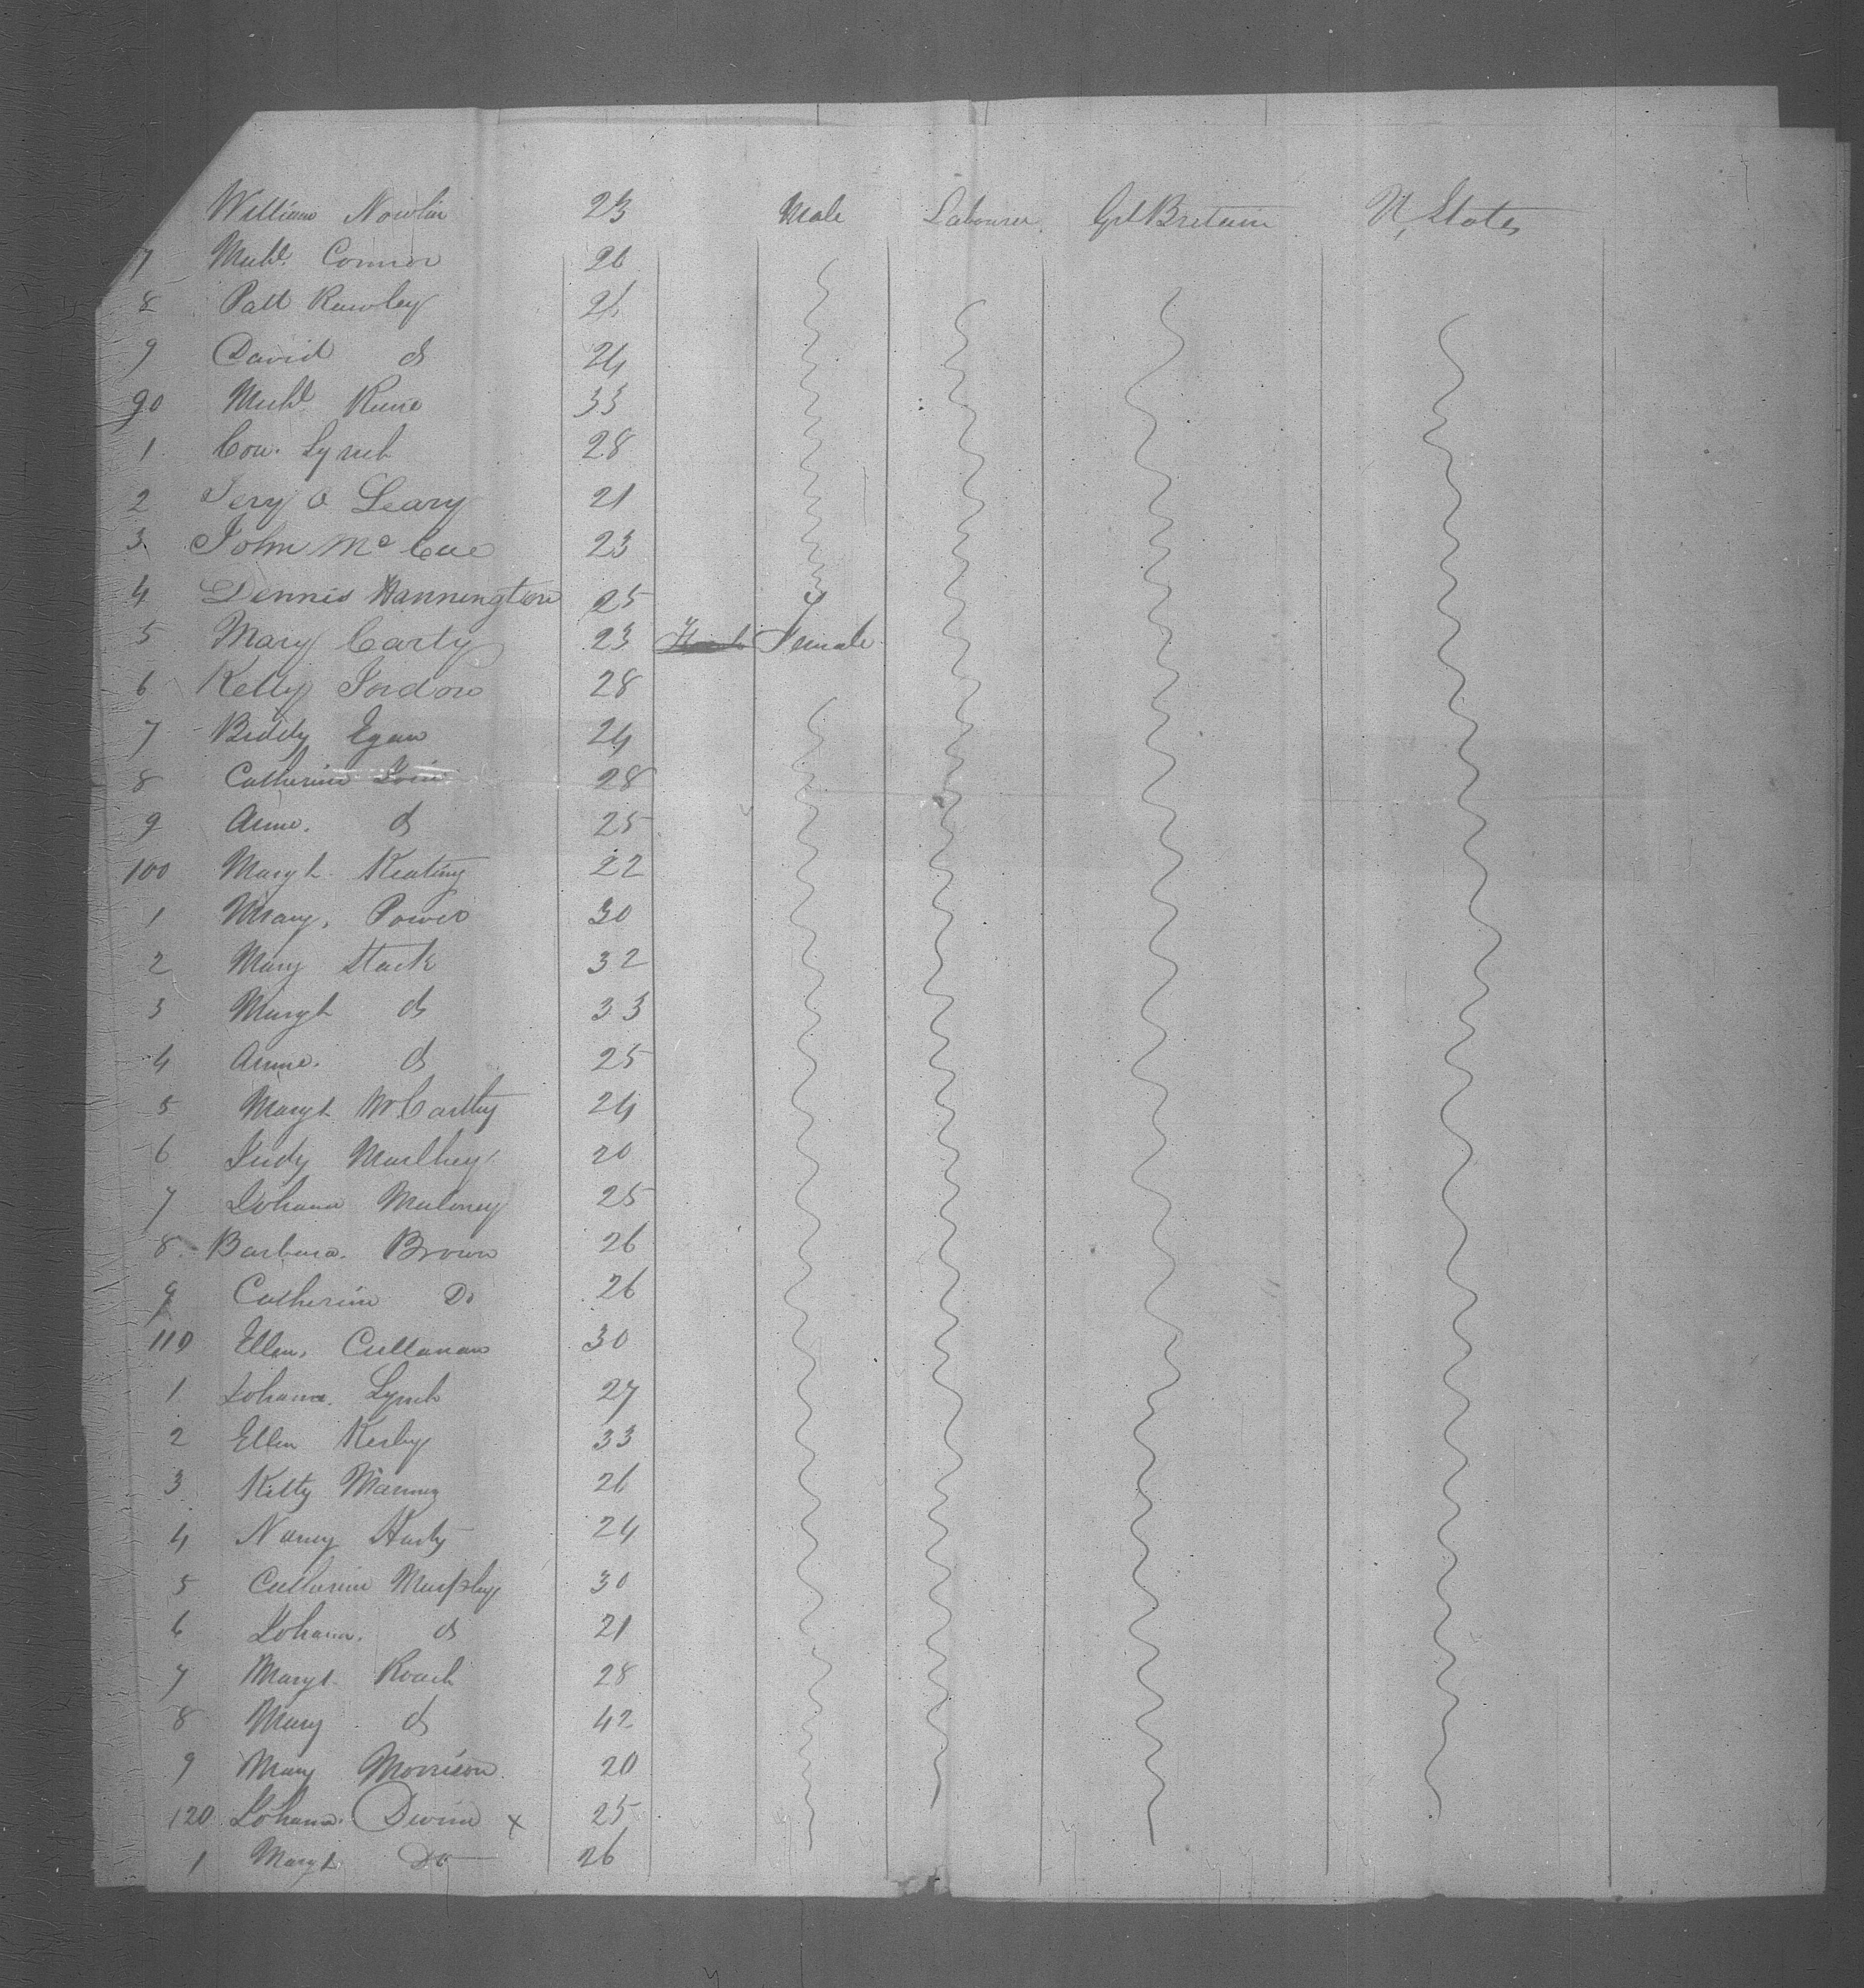 William Nowlin 23 Male Labourer Grt Britain U. States
7 Michl. Connor 26
8 Patt Rawley 26
9 David do 24
90 Michl. Kune 33
1 Con. Lynch 28
2 Jery O Leary 21
3 John McCue 23
4 Dennis Hannington 25
5 Mary Carty 23 Female
6 Kelly 28
7 Biddy Egan 24
8 Catherine 28
9 Anne. do 25
100 Margt. Keating 22
1 Mary. Power 30
2 Mary Stack 32
3 Margt do 33
4 Anne. do 25
5 Margt McCarthy 24
6 Judy 20
7 Johana Maloney 25
8 Barbara. Brown 26
9 Catherine Do 26
110 Ellen. Cullanan 30
1 Johana. Lynch 27
2 Ellen Kerby 33
3 Kitty Manning 26
4 Nancy Harty 24
5 Catherine Murphy 30
6 Johana. do 21
7 Margt. Roach 28
8 Mary do 42
9 Mary Morrison 20
120 Johana. Devine x 25
1 Margt Do 26